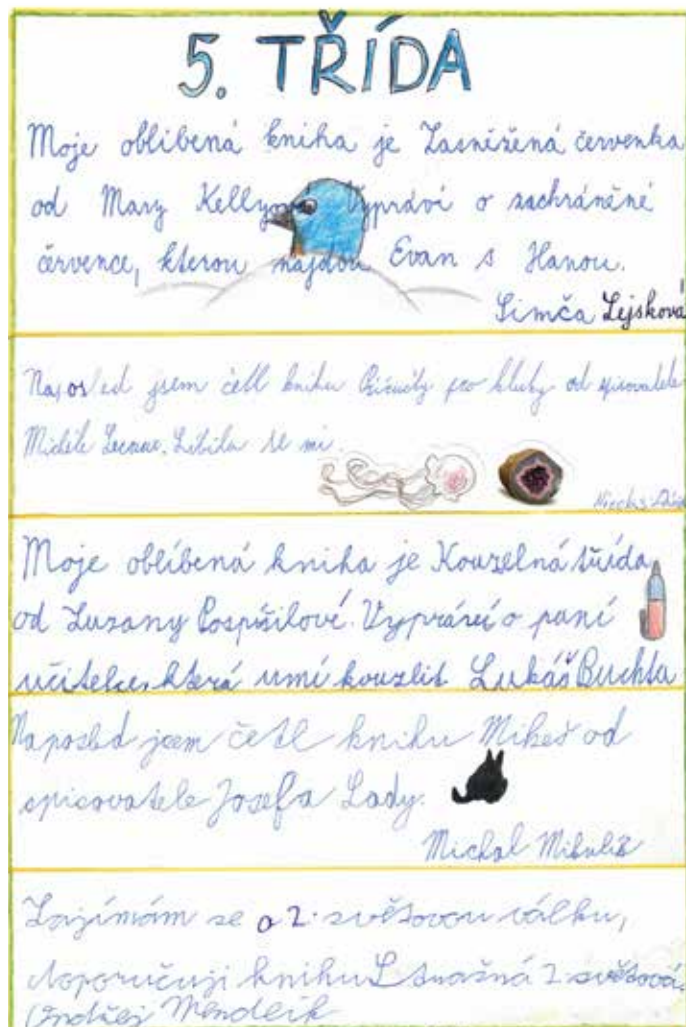 5. TŘÍDA
Moje oblíbená kniha je Zasněžená červenka
od Mary Kelly Vypráví o zachráněné
července, kterou najdou Evan s Hanou.
Simča Lejsková
Naposled jsem četl knihu pro kluky od spisovatele
Michéle Lecreux. Líbila se mi.
Moje oblíbená kniha je Kouzelná třída
od Zuzany Pospíšilové. Vypráví o paní
učitelce, která umí kouzlit Lukáš Buchta
Naposled jsem četl knihu Mikeš od
spisovatele Josefa Lady.
Michal Mikulík
Zajímám se o 2. světovou válku,
doporučuji knihu Strašná 2. světová.
Ondřej Mendlík